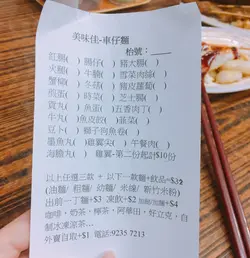 美味佳-車仔麵
枱號：____
紅腸( )腸仔( )豬大腸( )
火腩( )牛腩( )雪菜肉絲( )
蟹柳( )冬菇( )豬皮蘿蔔( )
煎蛋( )時菜( )芝士腸( )
貢丸( )魚蛋( )五香肉丁( )
牛丸( )魚皮餃( )韮菜( )
豆卜( )獅子狗魚卷( )
墨魚丸( )雞翼尖( )午餐肉( )
海膽丸( )雞翼-第二份起計$10份
以上任選三款 + 以下一款麵+飲品=$32
(油麵/ 粗麵/ 幼麵/ 米線/ 新竹米粉)
出前一丁麵+$3 凍飲+$2 加麵/加餸+$4
咖啡，奶茶，檸茶，阿華田，好立克，自
制冰凍涼茶...
外賣自取+$1 電話:9235 7213